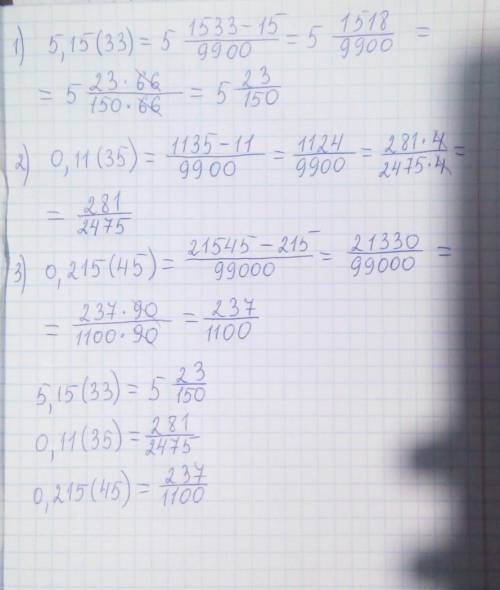 1) 5,15(33) = 5 1533-15/9900 = 5 1518/9900 =
= 5 23·66/150·66 = 5 23/150
2) 0,11(35) = 1135-11/9900 = 1124/9900 = 281·4/2475·4 =
= 281/2475
3) 0,215(45) = 21545-215/99000 = 21330/99000 =
= 237·90/1100·90 = 237/1100
5,15(33) = 5 23/150
0,11(35) = 281/2475
0,215(45) = 237/1100